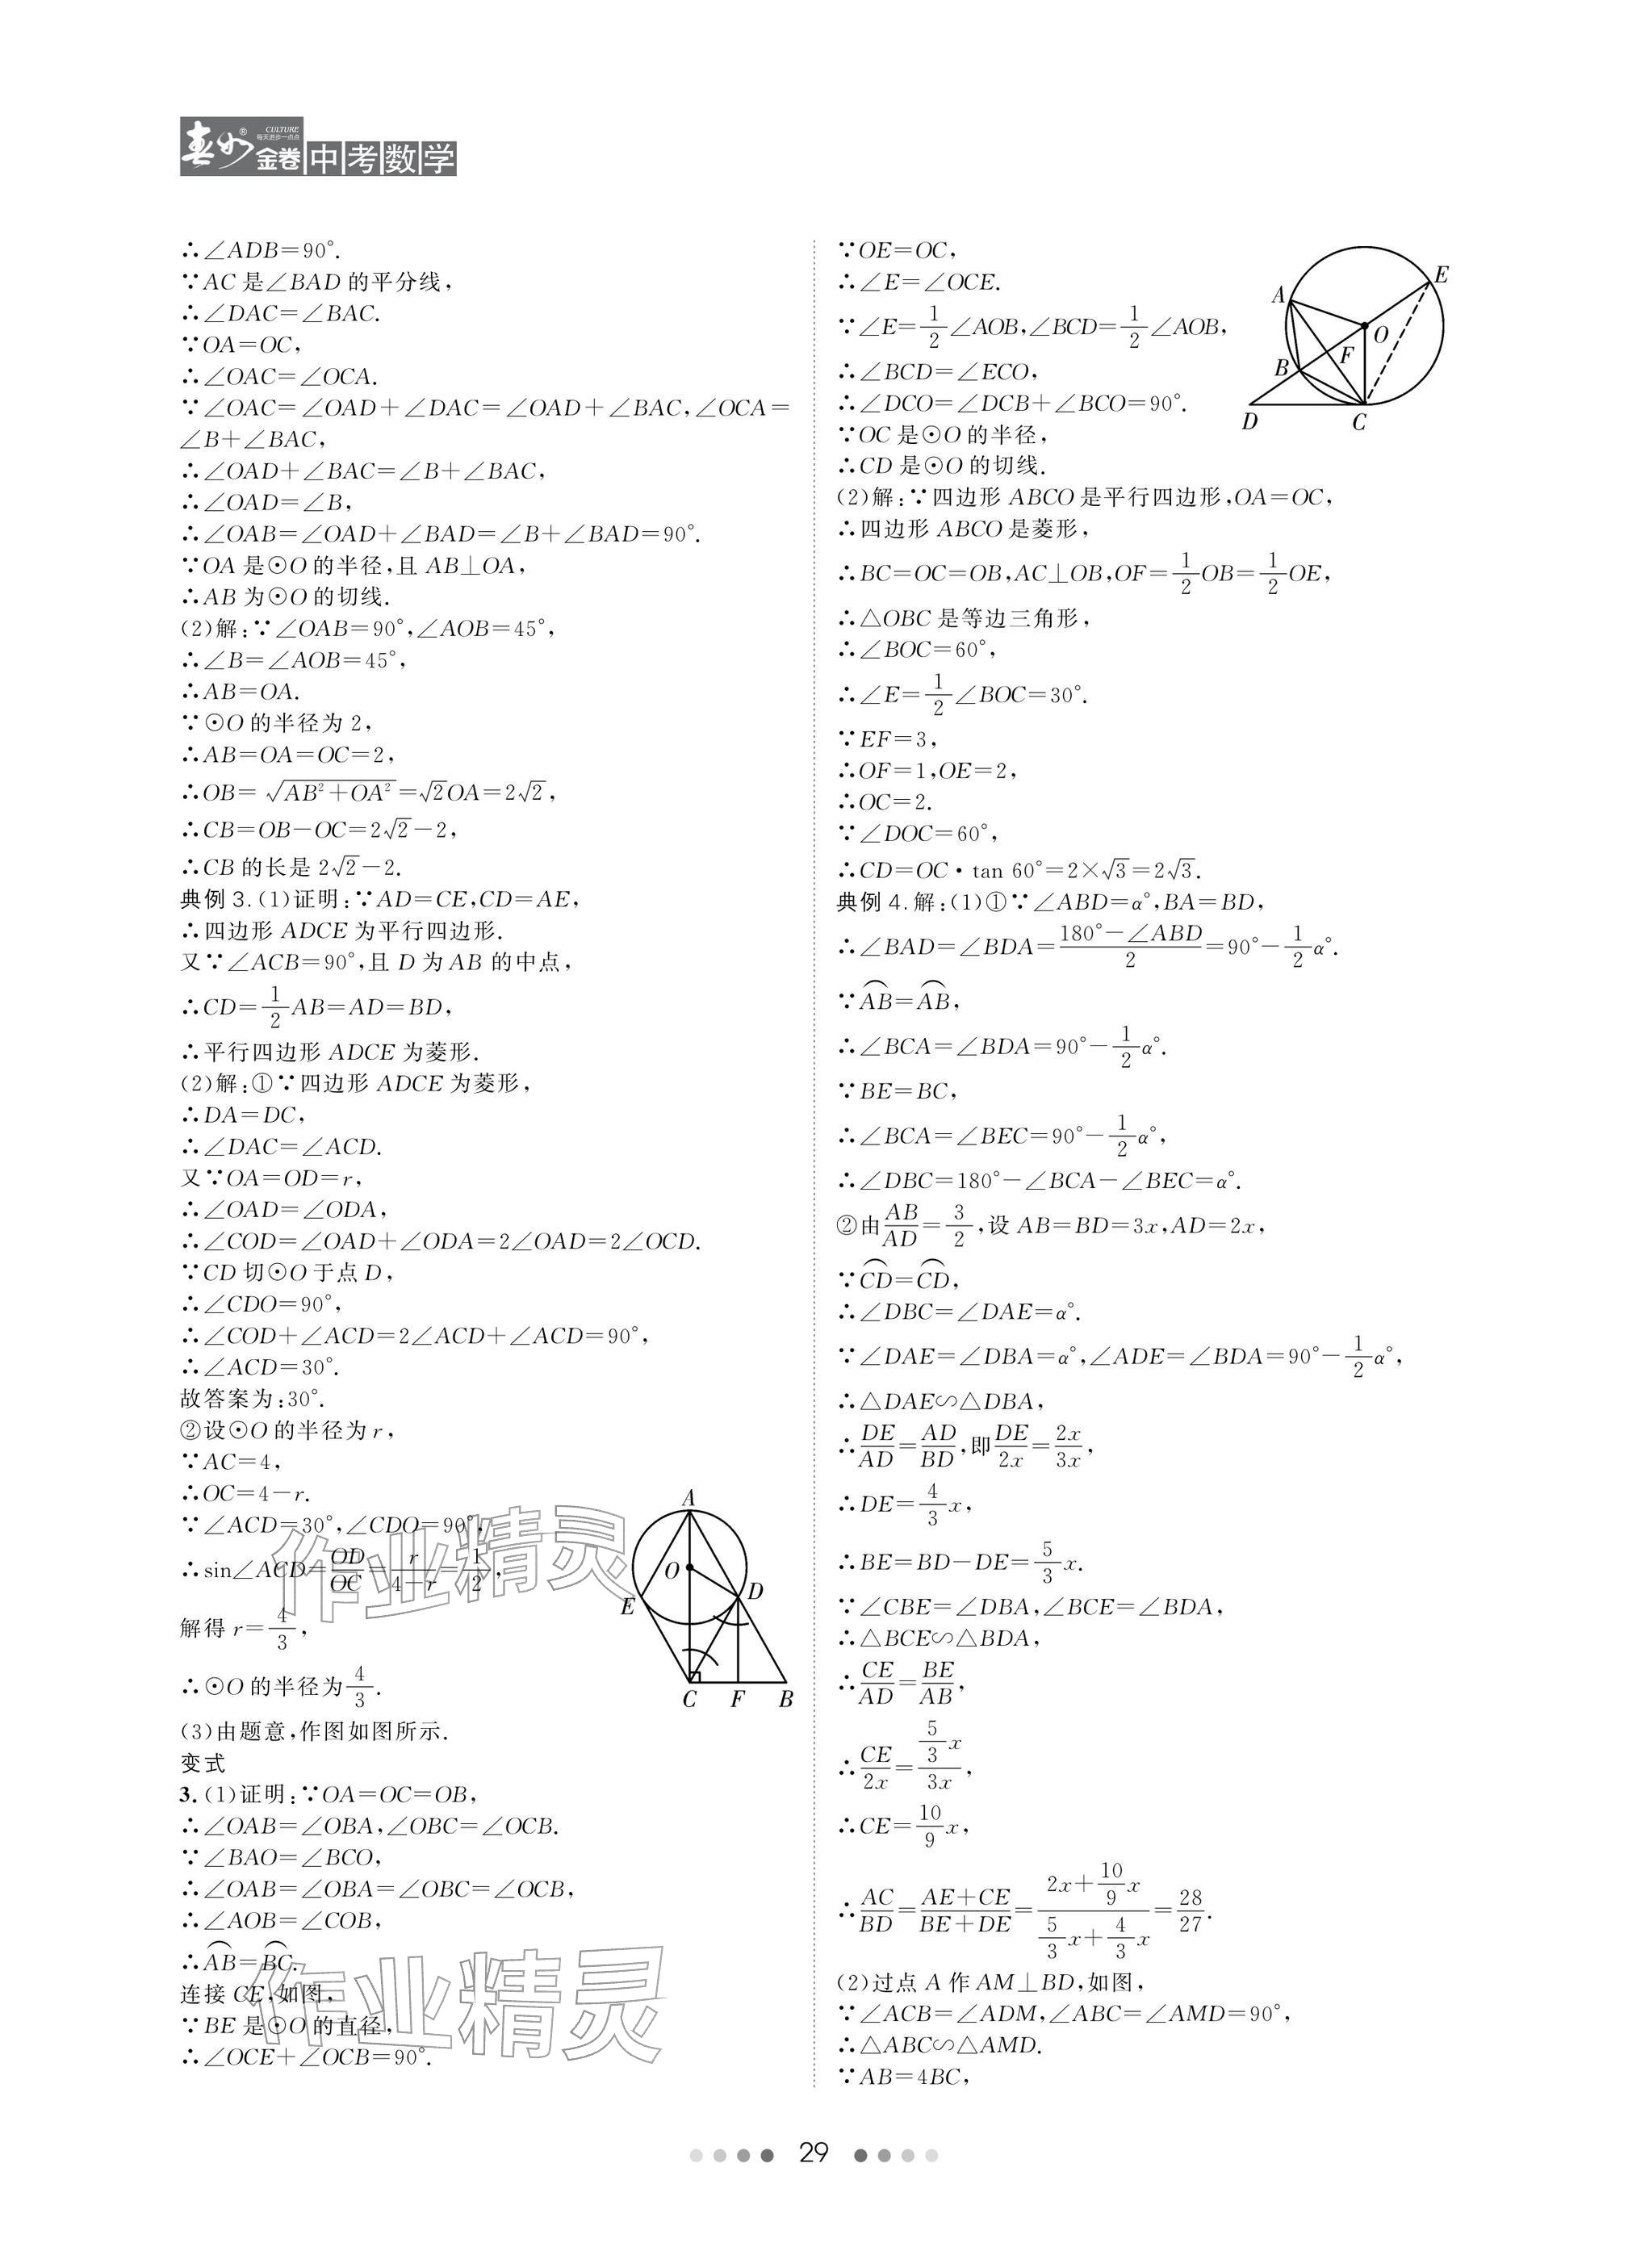 春如®金卷 CULTURE 每天进步一点点 中考数学
∴∠ADB=90°.
∵AC 是∠BAD 的平分线,
∴∠DAC=∠BAC.
∵OA=OC,
∴∠OAC=∠OCA.
∵∠OAC=∠OAD+∠DAC=∠OAD+∠BAC,∠OCA=
∠B+∠BAC,
∴∠OAD+∠BAC=∠B+∠BAC,
∴∠OAD=∠B,
∴∠OAB=∠OAD+∠BAD=∠B+∠BAD=90°.
∵OA 是⊙O 的半径,且 AB⊥OA,
∴AB 为⊙O 的切线.
(2)解:∵∠OAB=90°,∠AOB=45°,
∴∠B=∠AOB=45°,
∴AB=OA.
∵⊙O 的半径为 2,
∴AB=OA=OC=2,
∴OB=√(AB²+OA²)=√2OA=2√2,
∴CB=OB-OC=2√2-2,
∴CB 的长是 2√2-2.
典例 3.(1)证明:∵AD=CE,CD=AE,
∴四边形 ADCE 为平行四边形.
又∵∠ACB=90°,且 D 为 AB 的中点,
∴CD=1/2 AB=AD=BD,
∴平行四边形 ADCE 为菱形.
(2)解:①∵四边形 ADCE 为菱形,
∴DA=DC,
∴∠DAC=∠ACD.
又∵OA=OD=r,
∴∠OAD=∠ODA,
∴∠COD=∠OAD+∠ODA=2∠OAD=2∠OCD.
∵CD 切⊙O 于点 D,
∴∠CDO=90°,
∴∠COD+∠ACD=2∠ACD+∠ACD=90°,
∴∠ACD=30°.
故答案为:30°.
②设⊙O 的半径为 r,
∵AC=4,
∴OC=4-r.
∵∠ACD=30°,∠CDO=90°,
∴sin∠ACD=OD/OC=r/(4-r)=1/2,
解得 r=4/3,
∴⊙O 的半径为4/3.
(3)由题意,作图如图所示.
A
O
D
E
C F B
变式
3.(1)证明:∵OA=OC=OB,
∴∠OAB=∠OBA,∠OBC=∠OCB.
∵∠BAO=∠BCO,
∴∠OAB=∠OBA=∠OBC=∠OCB,
∴∠AOB=∠COB,
∴⌒AB=⌒BC.
连接 CE,如图,
∵BE 是⊙O 的直径,
∴∠OCE+∠OCB=90°.
作业精灵
作业精灵
∵OE=OC,
∴∠E=∠OCE.
∵∠E=1/2∠AOB,∠BCD=1/2∠AOB,
∴∠BCD=∠ECO,
∴∠DCO=∠DCB+∠BCO=90°.
∵OC 是⊙O 的半径,
∴CD 是⊙O 的切线.
E
A
O
F
B
D C
(2)解:∵四边形 ABCO 是平行四边形,OA=OC,
∴四边形 ABCO 是菱形,
∴BC=OC=OB,AC⊥OB,OF=1/2 OB=1/2 OE,
∴△OBC 是等边三角形,
∴∠BOC=60°,
∴∠E=1/2∠BOC=30°.
∵EF=3,
∴OF=1,OE=2,
∴OC=2.
∵∠DOC=60°,
∴CD=OC·tan 60°=2×√3=2√3.
典例 4.解:(1)①∵∠ABD=α°,BA=BD,
∴∠BAD=∠BDA=(180°-∠ABD)/2=90°-1/2 α°.
∵⌒AB=⌒AB,
∴∠BCA=∠BDA=90°-1/2 α°.
∵BE=BC,
∴∠BCA=∠BEC=90°-1/2 α°,
∴∠DBC=180°-∠BCA-∠BEC=α°.
②由AB/AD=3/2,设 AB=BD=3x,AD=2x,
∵⌒CD=⌒CD,
∴∠DBC=∠DAE=α°.
∵∠DAE=∠DBA=α°,∠ADE=∠BDA=90°-1/2 α°,
∴△DAE∽△DBA,
∴DE/AD=AD/BD,即DE/2x=2x/3x,
∴DE=4/3 x,
∴BE=BD-DE=5/3 x.
∵∠CBE=∠DBA,∠BCE=∠BDA,
∴△BCE∽△BDA,
∴CE/AD=BE/AB,
∴CE/2x=(5/3 x)/3x,
∴CE=10/9 x,
∴AC/BD=(AE+CE)/(BE+DE)=(2x+10/9 x)/(5/3 x+4/3 x)=28/27.
(2)过点 A 作 AM⊥BD,如图,
∵∠ACB=∠ADM,∠ABC=∠AMD=90°,
∴△ABC∽△AMD.
∵AB=4BC,
29